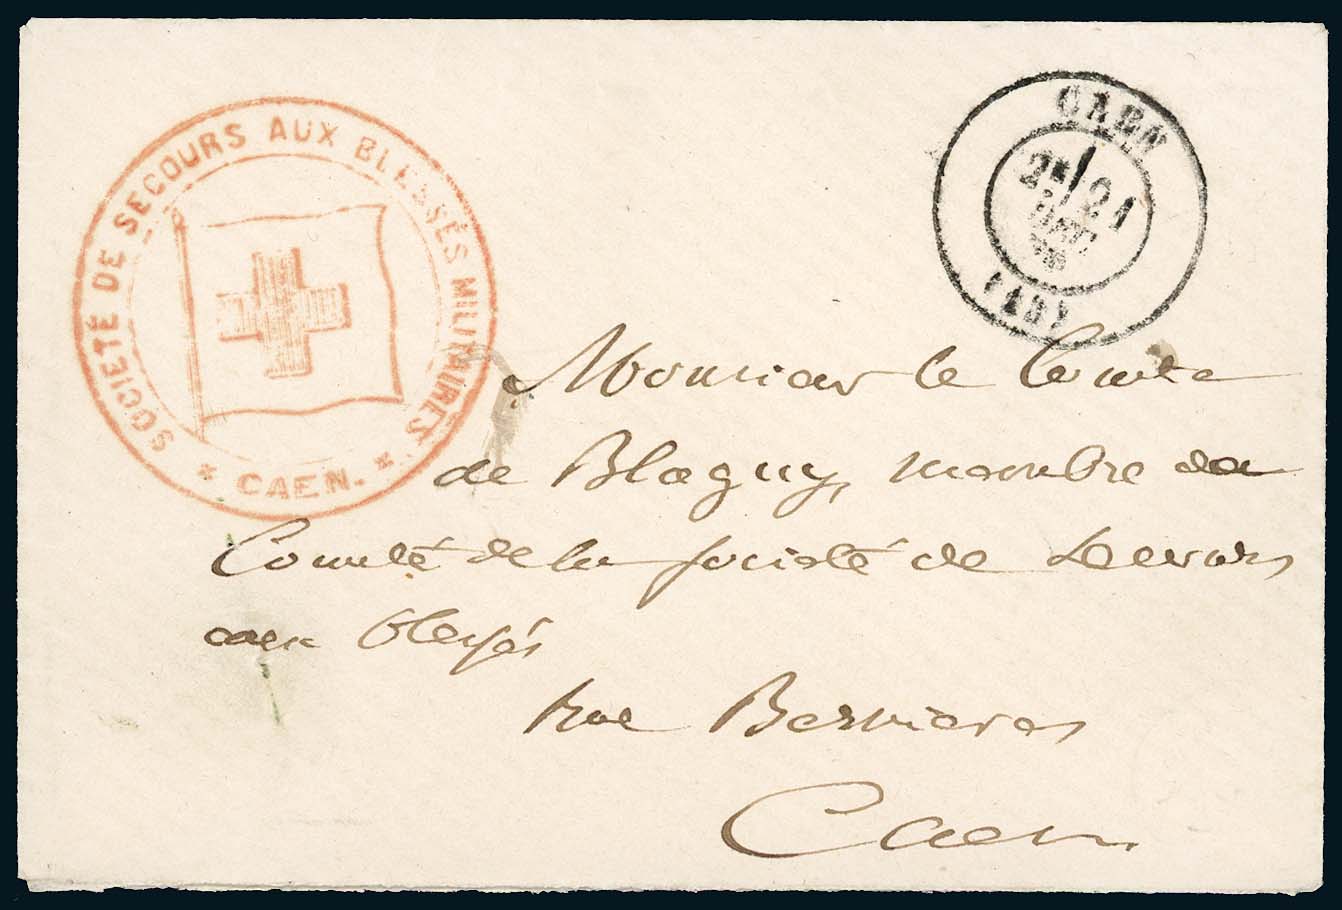 SOCIÉTÉ DE SECOURS AUX BLESSÉS MILITAIRES
* CAEN. *
CAEN
2E/ 21
Monsieur le Comte
de Blagny, membre du
Comité de la Société de Secours
aux blessés
Rue Bernieres
Caen